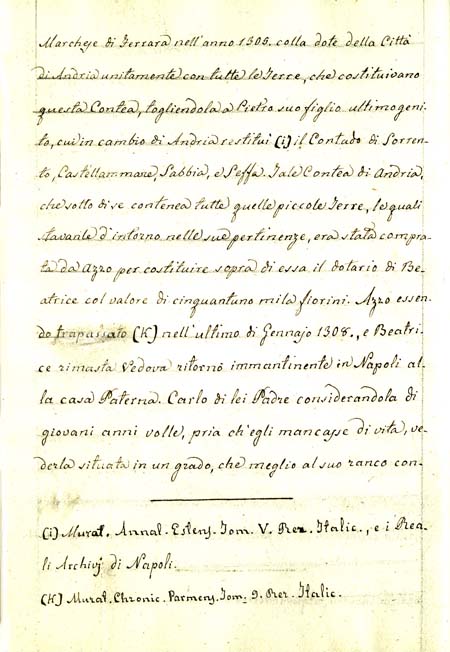 Marchese di Ferrara nell'anno 1305. colla dote della Città
di Andria unitamente con tutte le Terre, che costituivano
questa Contea, togliendola a Pietro suo figlio ultimogeni-
to, cui in cambio di Andria restituì (i) il Contado di Sorren-
to, Castellammare, Sabbia, e Seffa. Tale Contea di Andria,
che sotto di se contenea tutte quelle piccole Terre, le quali
stavanle d'intorno nelle sue pertinenze, era stata compra-
ta da Azzo per costituire sopra di essa il dotario di Be-
atrice col valore di cinquantuno mila fiorini. Azzo essen-
do trapassato (K) nell'ultimo di Gennajo 1308., e Beatri-
ce rimasta Vedova ritornò immantinente in Napoli al-
la casa Paterna. Carlo di lei Padre considerandola di
giovani anni volle, pria ch'egli mancasse di vita, ve-
derla situata in un grado, che meglio al suo ranco con-
(i) Murat. Annal. Estens. Tom. V. Rer. Italic., e i Rea-
li Archivj di Napoli.
(K) Murat. Chronic. Parmens. Tom. 9. Rer. Italic.